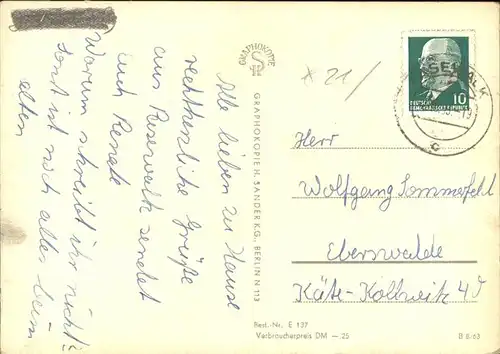 Alle lieben zu Hause
recht herzliche Grüße
aus Pasewalk sendet
euch Renate
Warum schreibt ihr nicht?
Sonst ist noch alles beim
alten
GRAPHOKOPIE
GRAPHOKOPIE H. SANDER K.G., BERLIN N 113
x 21/
DEUTSCHE
DEMOKRATISCHE REPUBLIK
10
Herr
Wolfgang Sommerfeld
Eberswalde
Käte-Kollwitz 40
Best.-Nr. E 137
Verbraucherpreis DM —.25
B 8/63